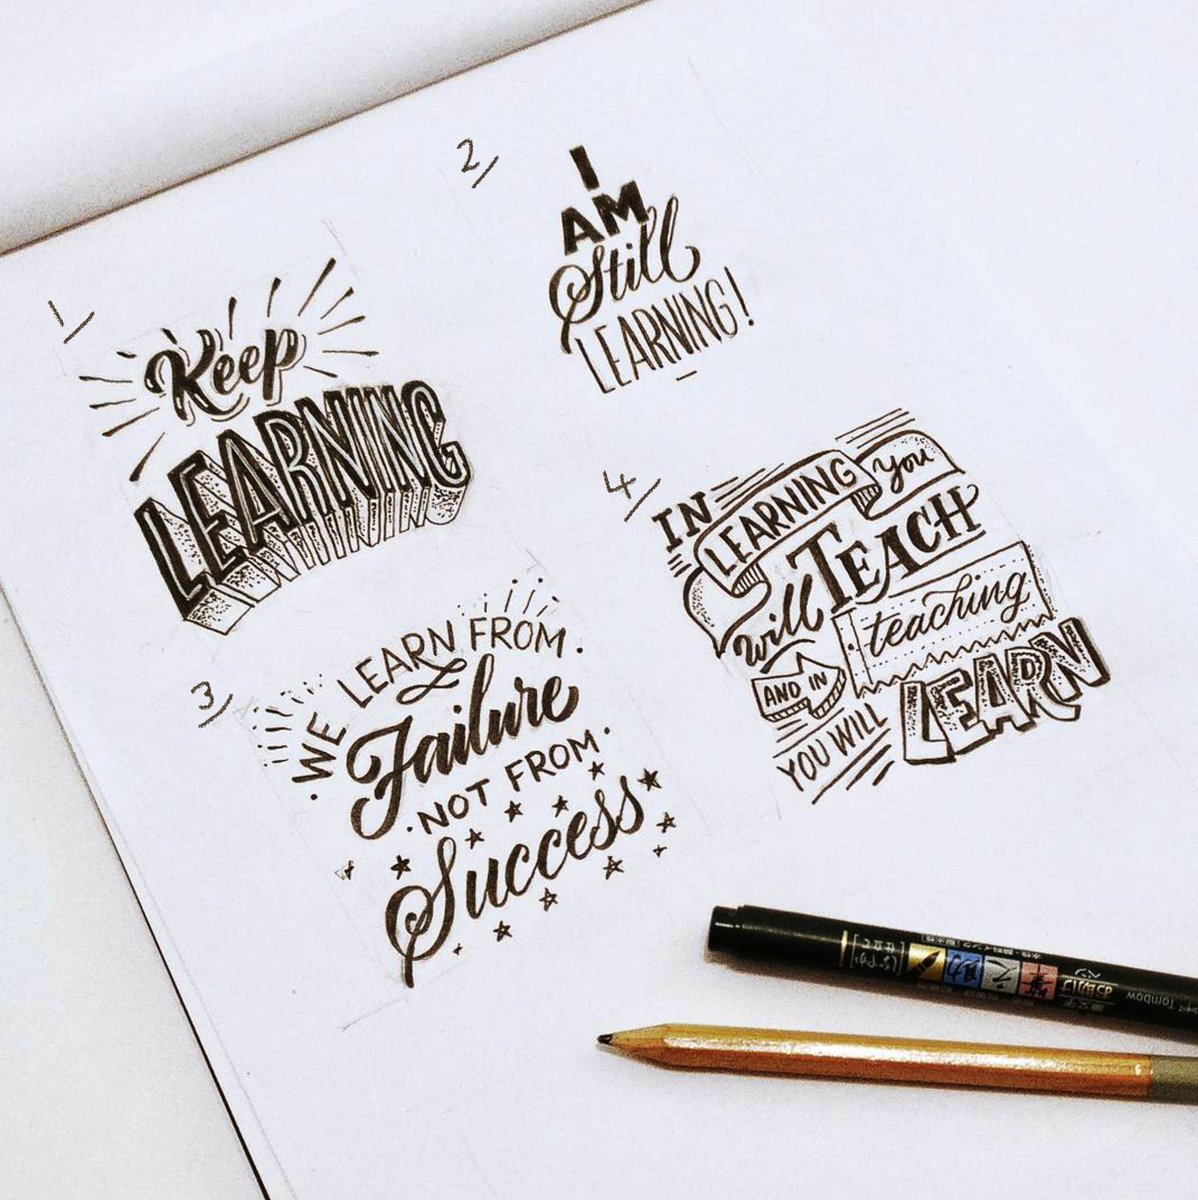 1/
Keep
LEARNING
2/
I
AM
Still
LEARNING!
3/
WE LEARN FROM
Failure
NOT FROM
Success
4/
IN LEARNING you
will TEACH
AND IN teaching
YOU WILL LEARN
Tombow